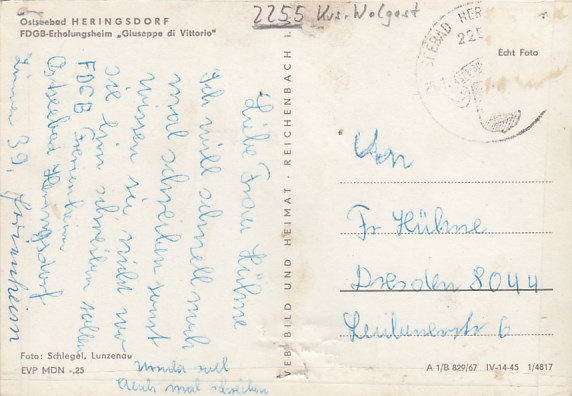 Ostseebad HERINGSDORF
FDGB-Erholungsheim „Giuseppe di Vittorio“
2255 Krs. Wolgast
Echt Foto
OSTSEEBAD HER
225
Liebe Frau Hühne
Ich will schnell noch
mal schreiben sonst
wissen sie nicht wo
sie hin schreiben sollen
FDGB
Ostseebad Heringsdorf
Zimmer 39,
Ursula soll
auch mal schreiben
VEB BILD UND HEIMAT · REICHENBACH I.
Von
Fr Hühne
Dresden 8044
6
Foto: Schlegel, Lunzenau
EVP MDN -,25
A 1/B 829/67 IV-14-45 1/4817